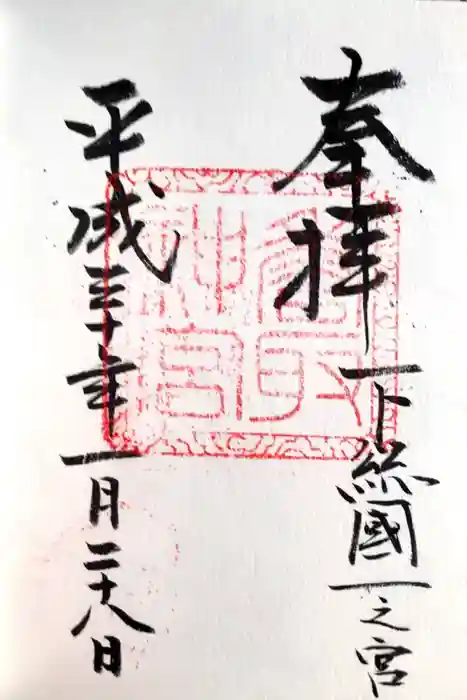 奉拝
下総國一之宮
香取
神宮
平成三十年一月二十八日